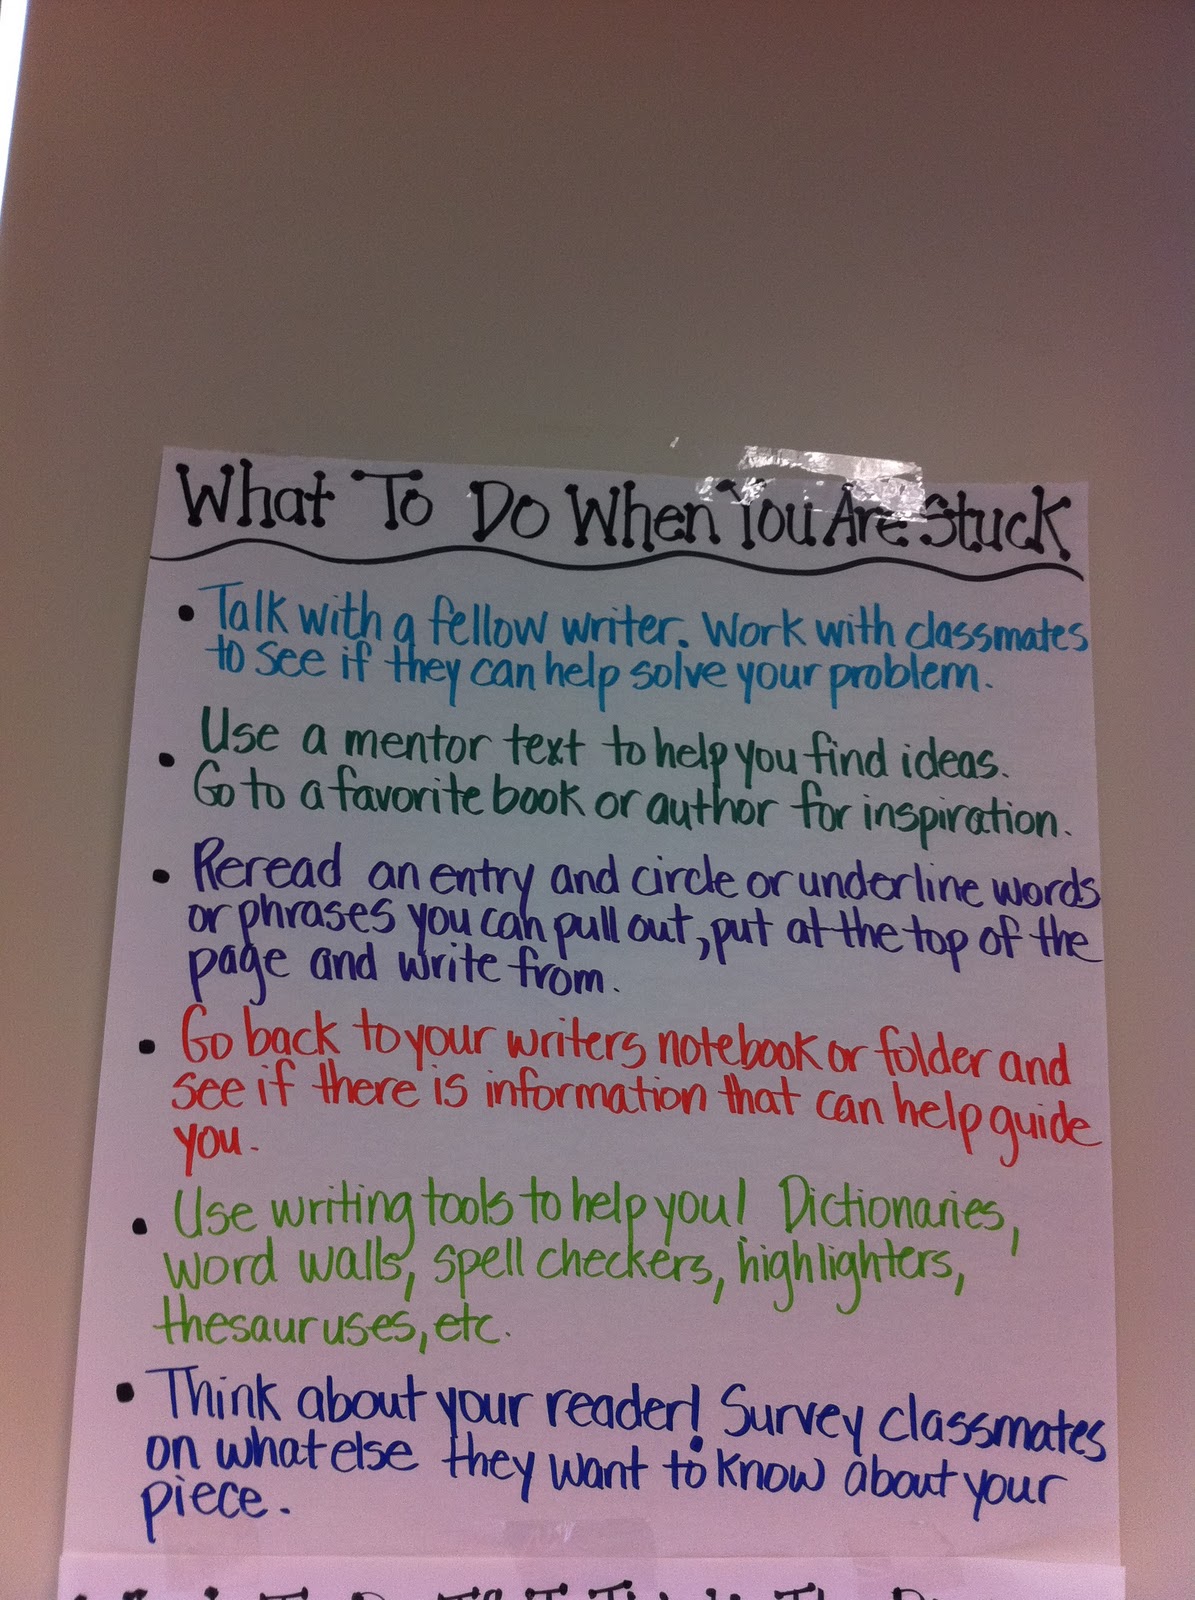 What To Do When You Are Stuck
• Talk with a fellow writer. Work with classmates
to see if they can help solve your problem.
• Use a mentor text to help you find ideas.
Go to a favorite book or author for inspiration.
• Reread an entry and circle or underline words
or phrases you can pull out, put at the top of the
page and write from.
• Go back to your writers notebook or folder and
see if there is information that can help guide
you.
• Use writing tools to help you! Dictionaries,
word walls, spell checkers, highlighters,
thesauruses, etc.
• Think about your reader! Survey classmates
on what else they want to know about your
piece.